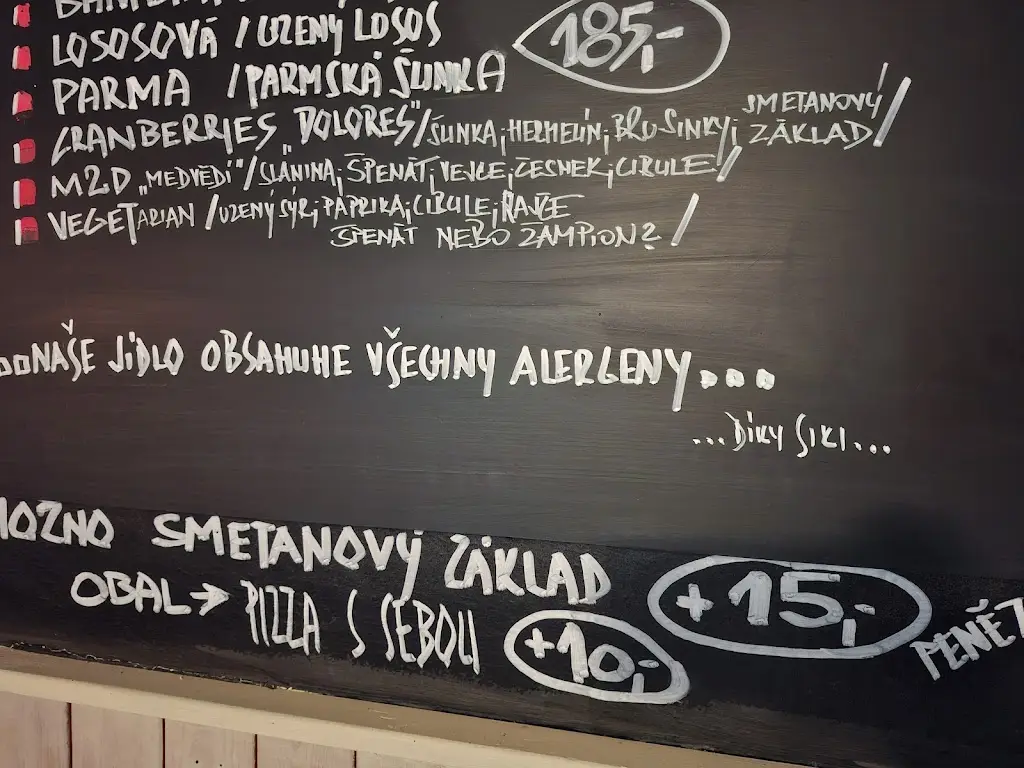 LOSOSOVÁ / UZENÝ LOSOS
185,-
PARMA / PARMSKÁ ŠUNKA
CRANBERRIES "DOLORES" / ŠUNKA; HERMELÍN; BRUSINKY; SMETANOVÝ ZÁKLAD /
M2D „MEDVĚDÍ" / SLANINA; ŠPENÁT; VEJCE; ČESNEK; CIBULE /
VEGETARIAN / UZENÝ SÝR; PAPRIKA; CIBULE; RAJČE
ŠPENÁT NEBO ŽAMPION? /
NAŠE JÍDLO OBSAHUHE VŠECHNY ALERGENY...
...DÍKY SIKI...
MOZNO SMETANOVÝ ZÁKLAD
+15,-
OBAL → PIZZA S SEBOU
+10,-